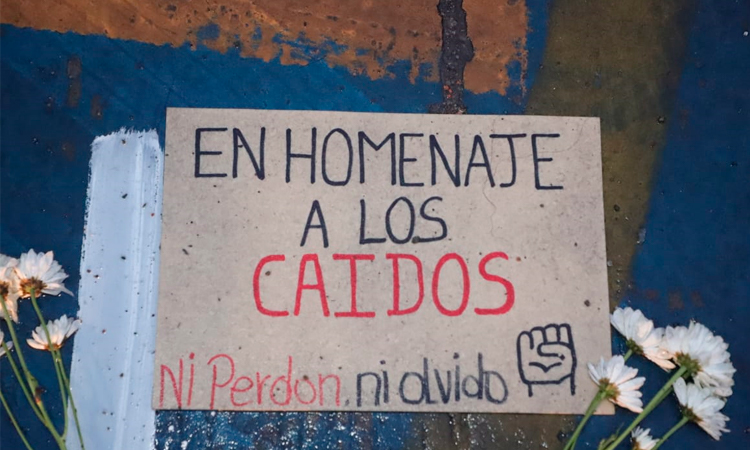 EN HOMENAJE
A LOS
CAIDOS
Ni Perdon, ni olvido